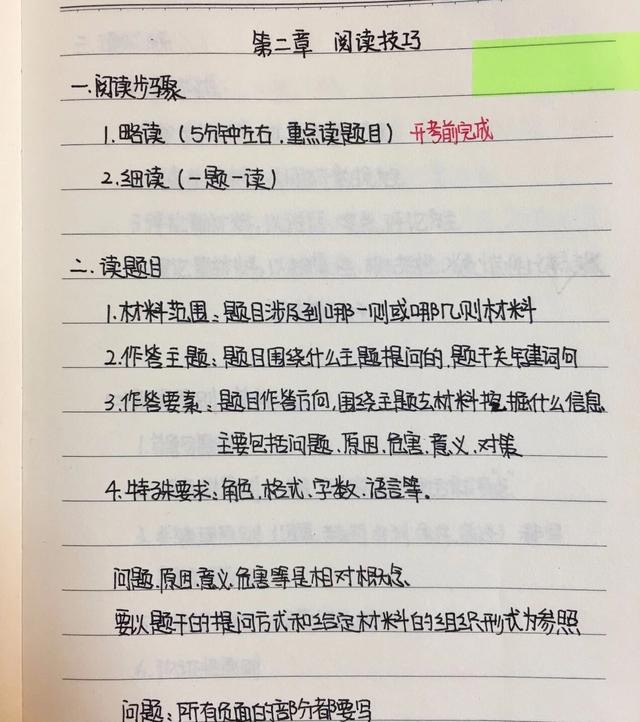 第二章 阅读技巧
一.阅读步骤
1.略读（5分钟左右，重点读题目） 开考前完成
2.细读（一题一读）
二.读题目
1.材料范围：题目涉及到哪一则或哪几则材料
2.作答主题：题目围绕什么主题提问的，题干关键词句
3.作答要素：题目作答方向，围绕主题去材料挖掘什么信息
主要包括问题、原因、危害、意义、对策
4.特殊要求：角色、格式、字数、语言等。
问题、原因、意义、危害等是相对概念
要以题干的提问方式和给定材料的组织形式为参照
问题：所有负面的部分都要写